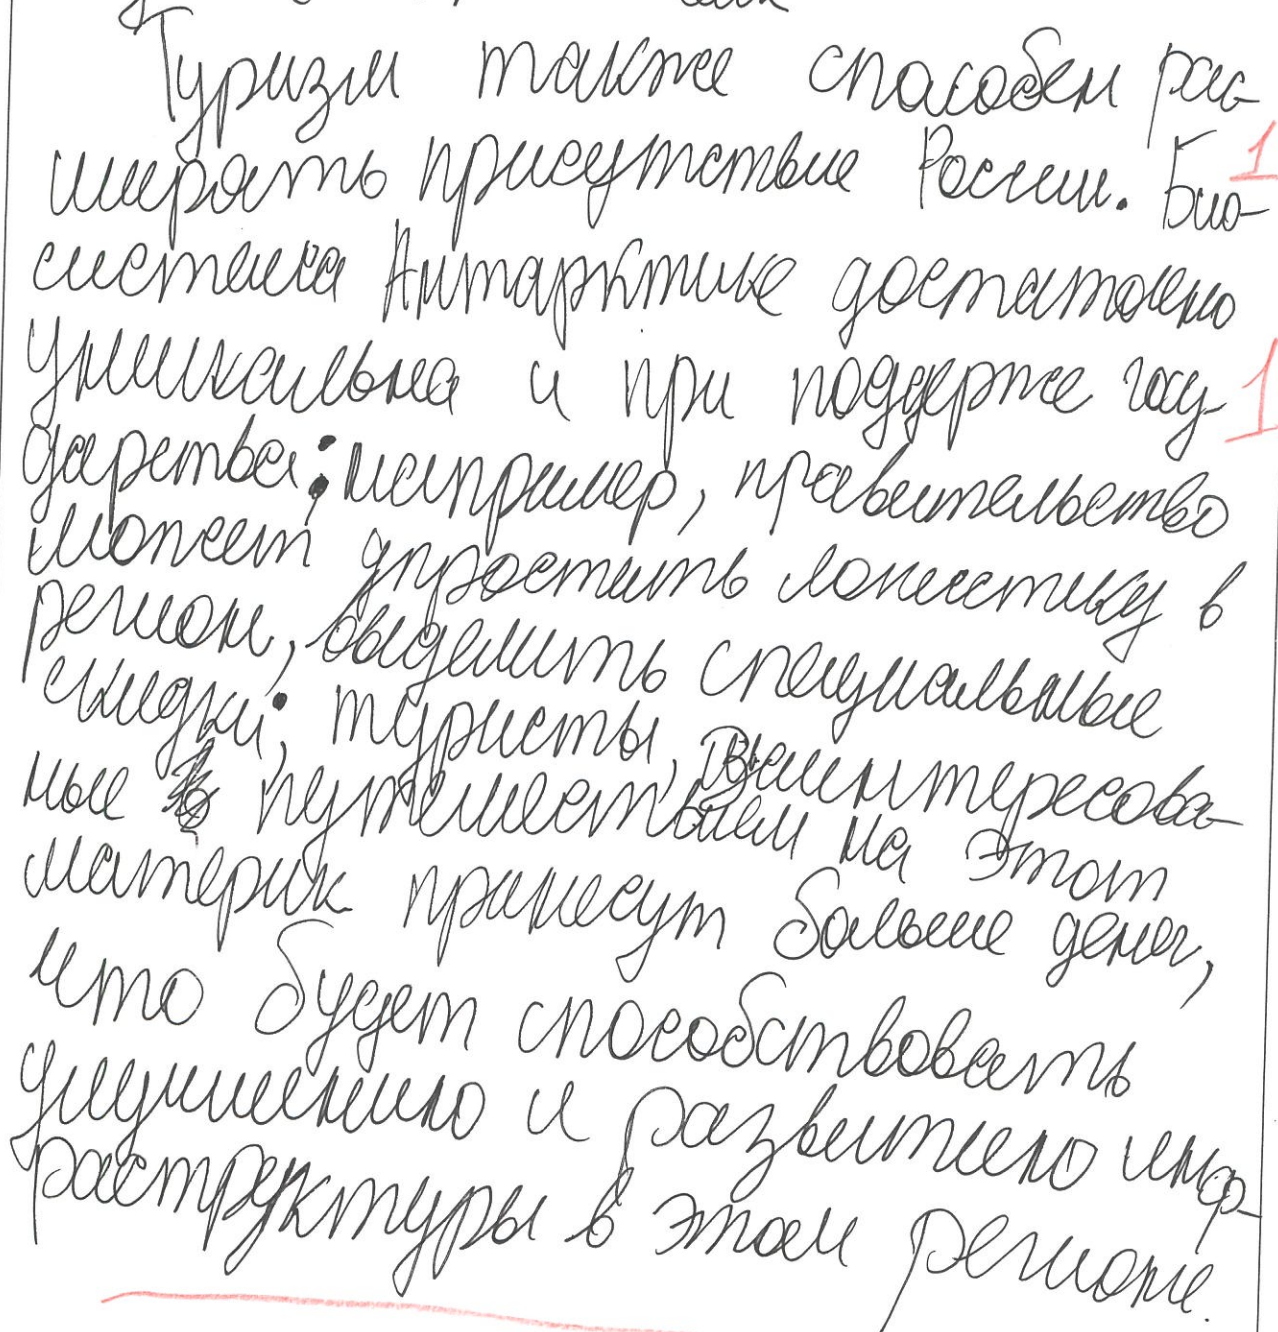 Туризм также способен рас-
ширять присутствие России. Био-
система Антарктике достаточно
уникальна и при поддерже госу-
дарства; например, правительство
может упростить логистику в
регион, выделить специальные
скидки; туристы, заинтересова-
ные путешествием на этот
материк принесут больше денег,
что будет способствовать
улучшению и развитию инф-
раструктуры в этом регионе.
1
1